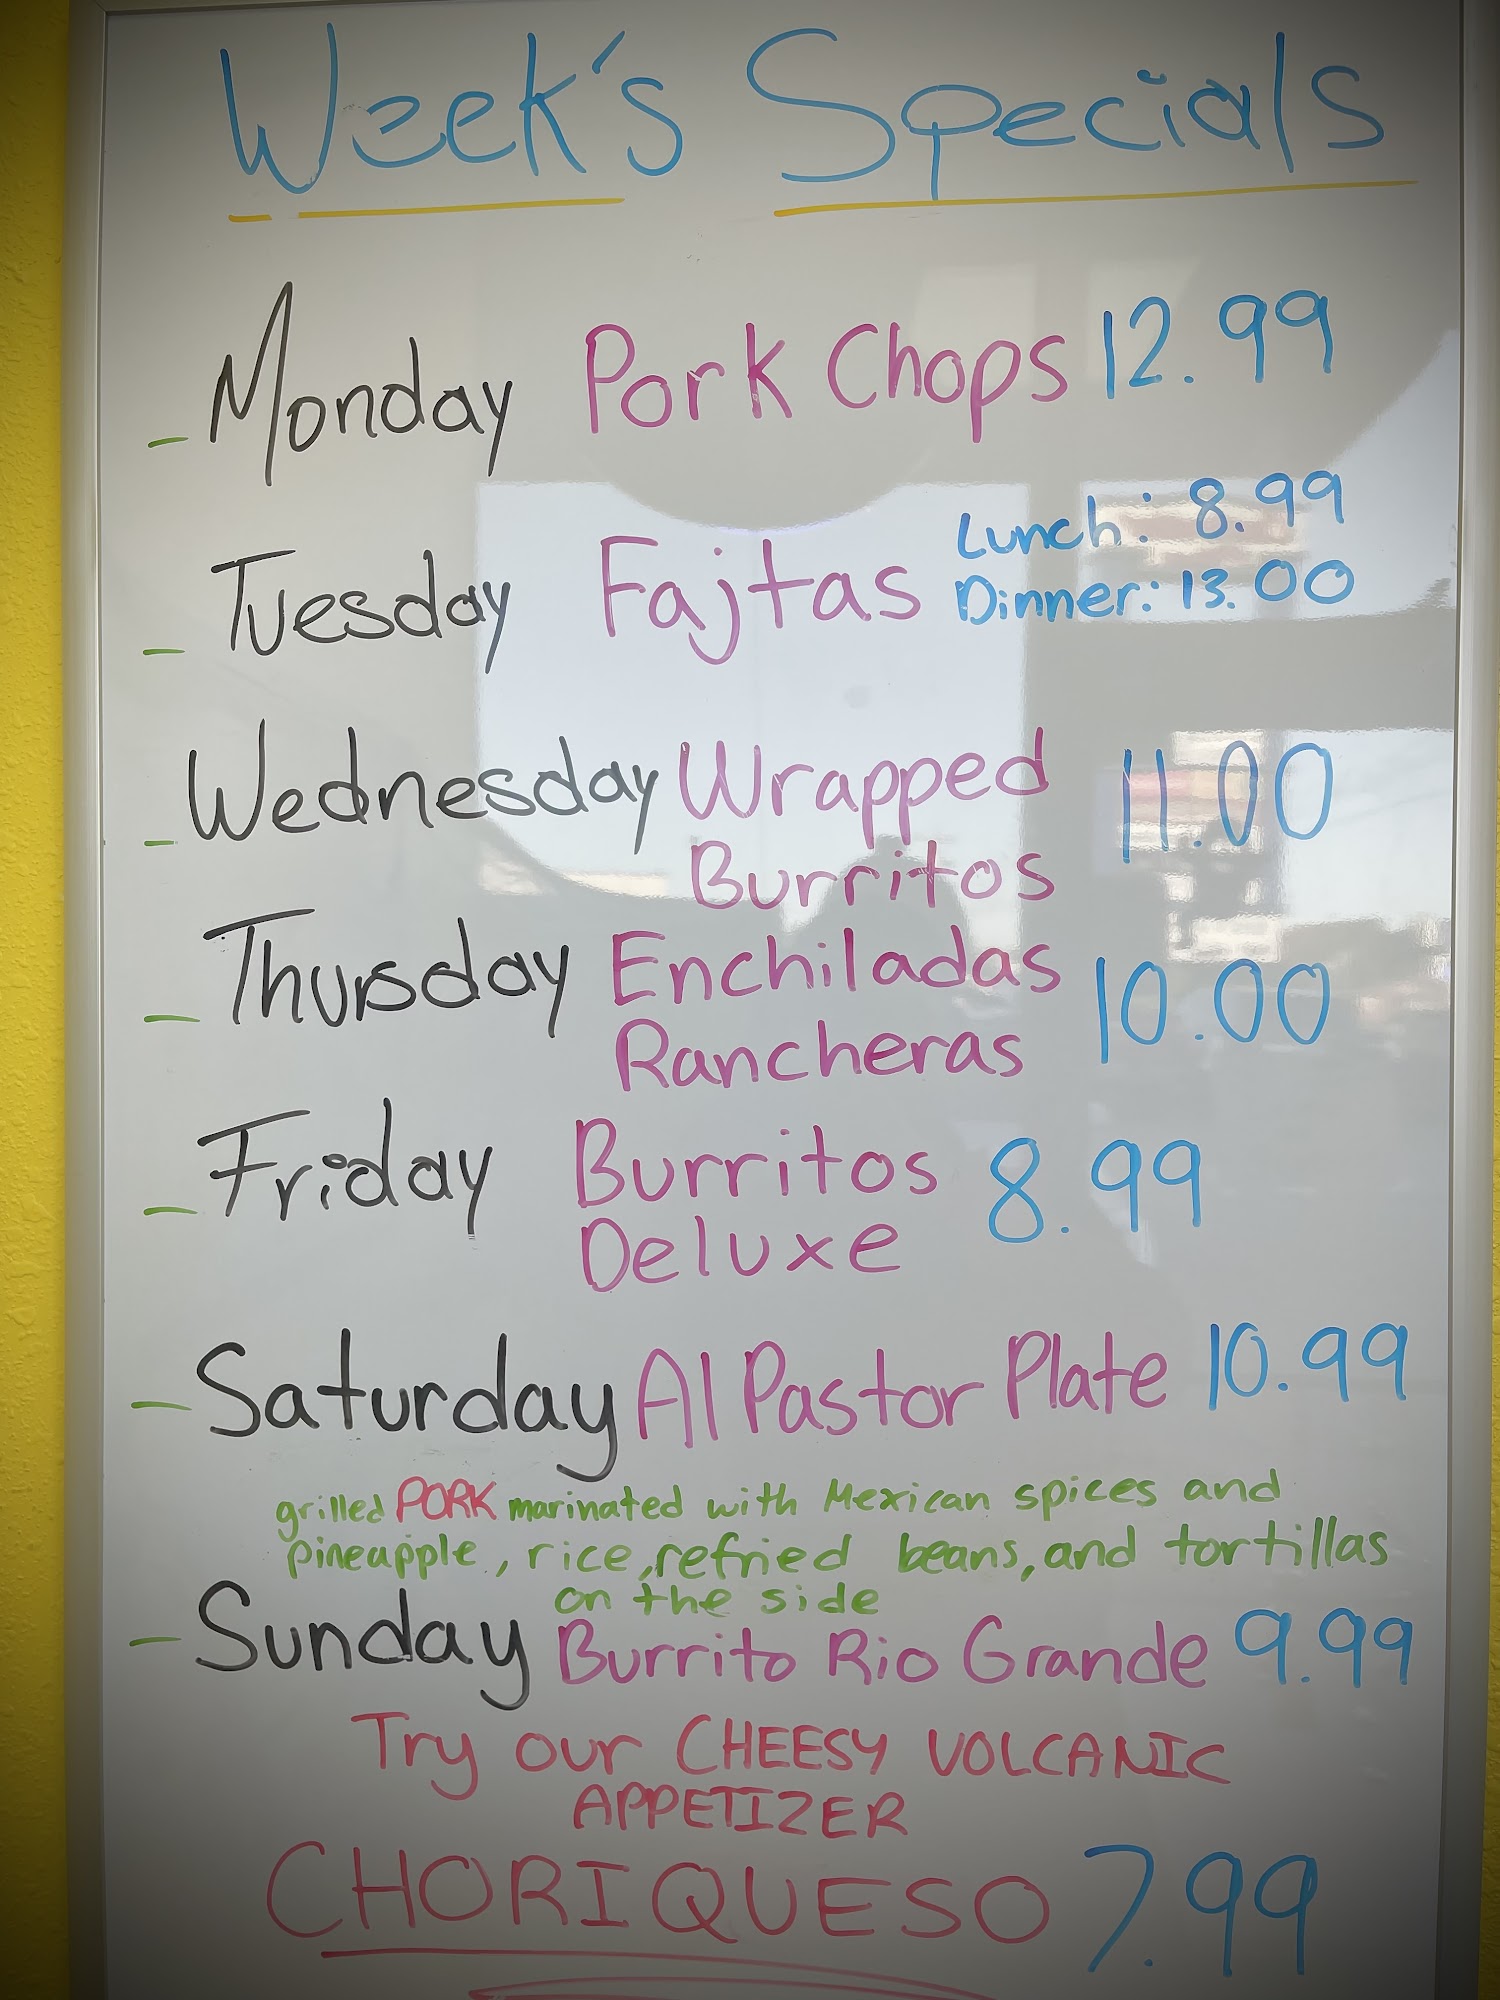 Week's Specials
- Monday Pork Chops 12.99
- Tuesday Fajtas Lunch: 8.99
Dinner: 13.00
- Wednesday Wrapped 11.00
Burritos
- Thursday Enchiladas 10.00
Rancheras
- Friday Burritos 8.99
Deluxe
- Saturday Al Pastor Plate 10.99
grilled PORK marinated with Mexican spices and
pineapple, rice, refried beans, and tortillas
on the side
- Sunday Burrito Rio Grande 9.99
Try our CHEESY VOLCANIC
APPETIZER
CHORIQUESO 7.99